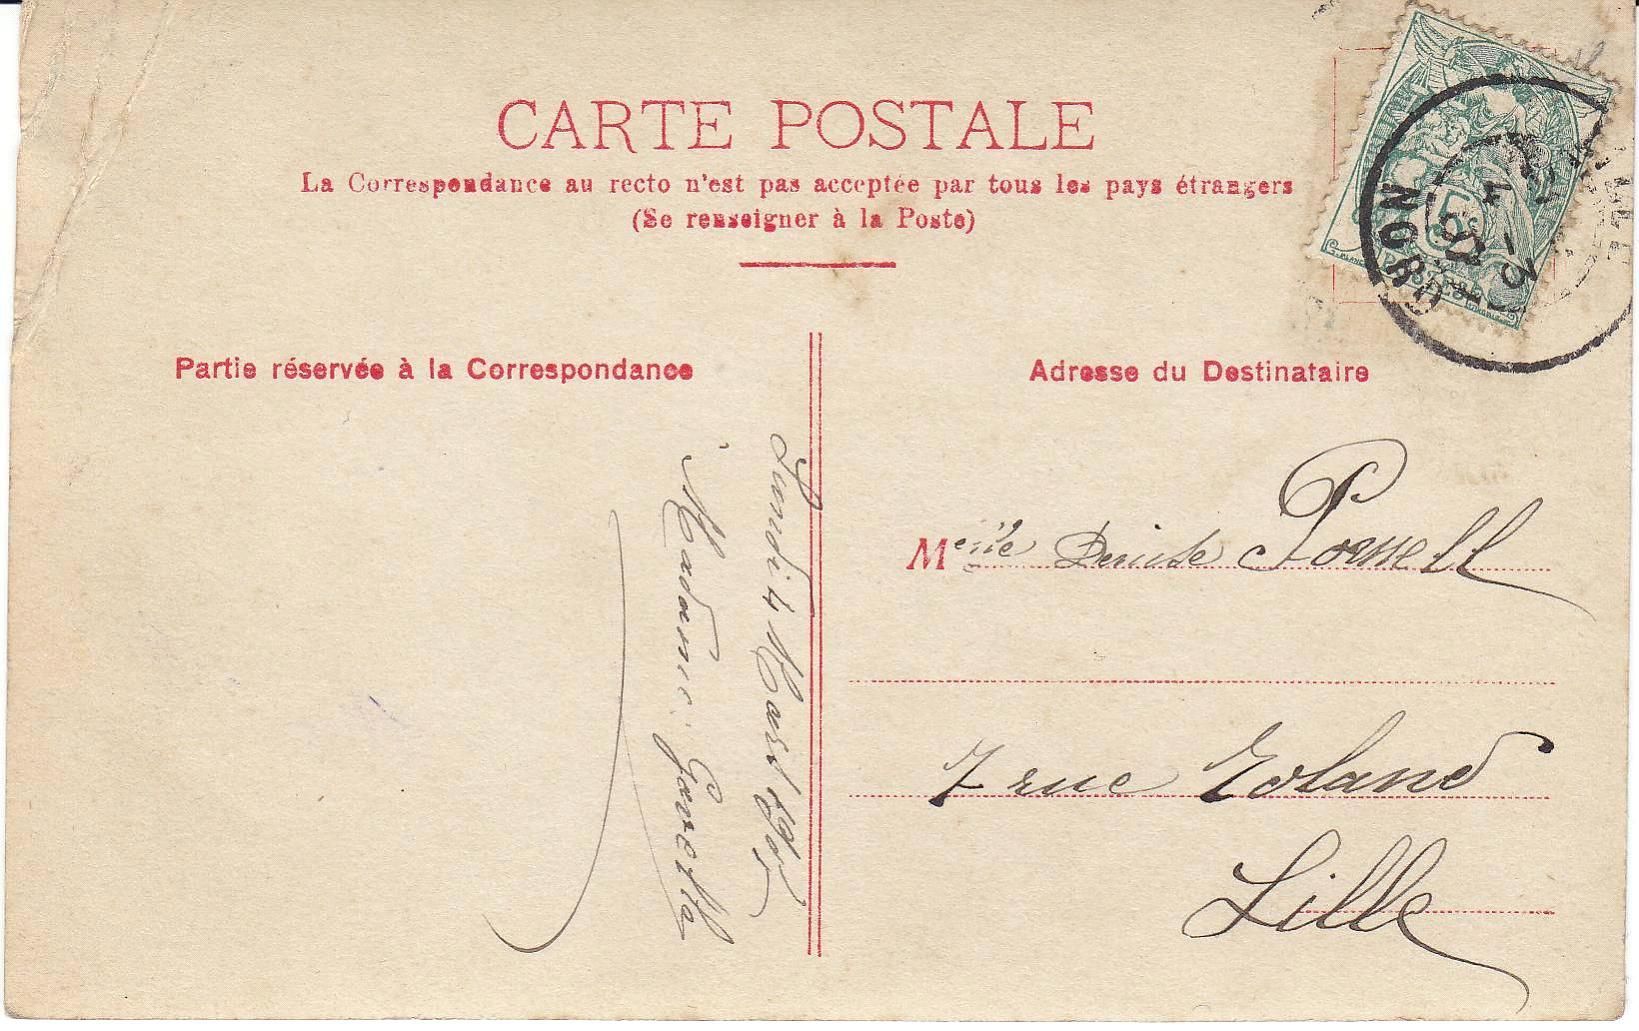 CARTE POSTALE
La Correspondance au recto n'est pas acceptée par tous les pays étrangers
(Se renseigner à la Poste)
Partie réservée à la Correspondance
Adresse du Destinataire
Lundi 4 Mars
Madame
Melle Denise
7 rue Roland
Lille
NORD
5
POSTES